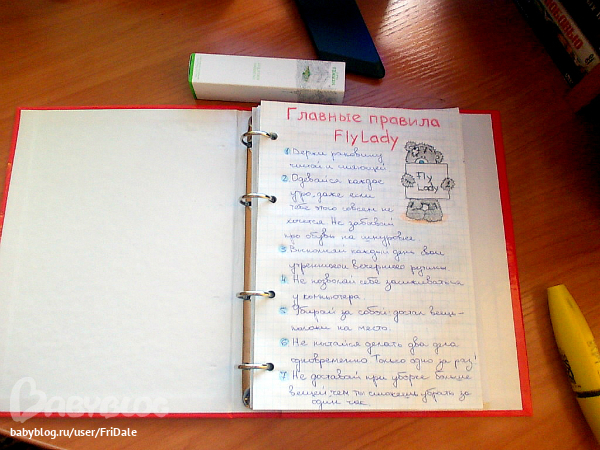 Главные правила
FlyLady
1 Держи раковину
чистой и сияющей
2. Одевайся каждое
утро, даже если
тебе этого совсем не
хочется. Не забывай
про обувь на шнуровке
3 Выполняй каждый день свои
утреннюю и вечернюю рутины
4 Не позволяй себе засиживаться
у компьютера
5 Убирай за собой: достал вещь-
положи на место
6 Не пытайся делать два дела
одновременно Только одно за раз!
7 Не доставай при уборке больше
вещей чем ты сможешь убрать за
один час
Fly
Lady
BABYBLOG
babyblog.ru/user/FriDale